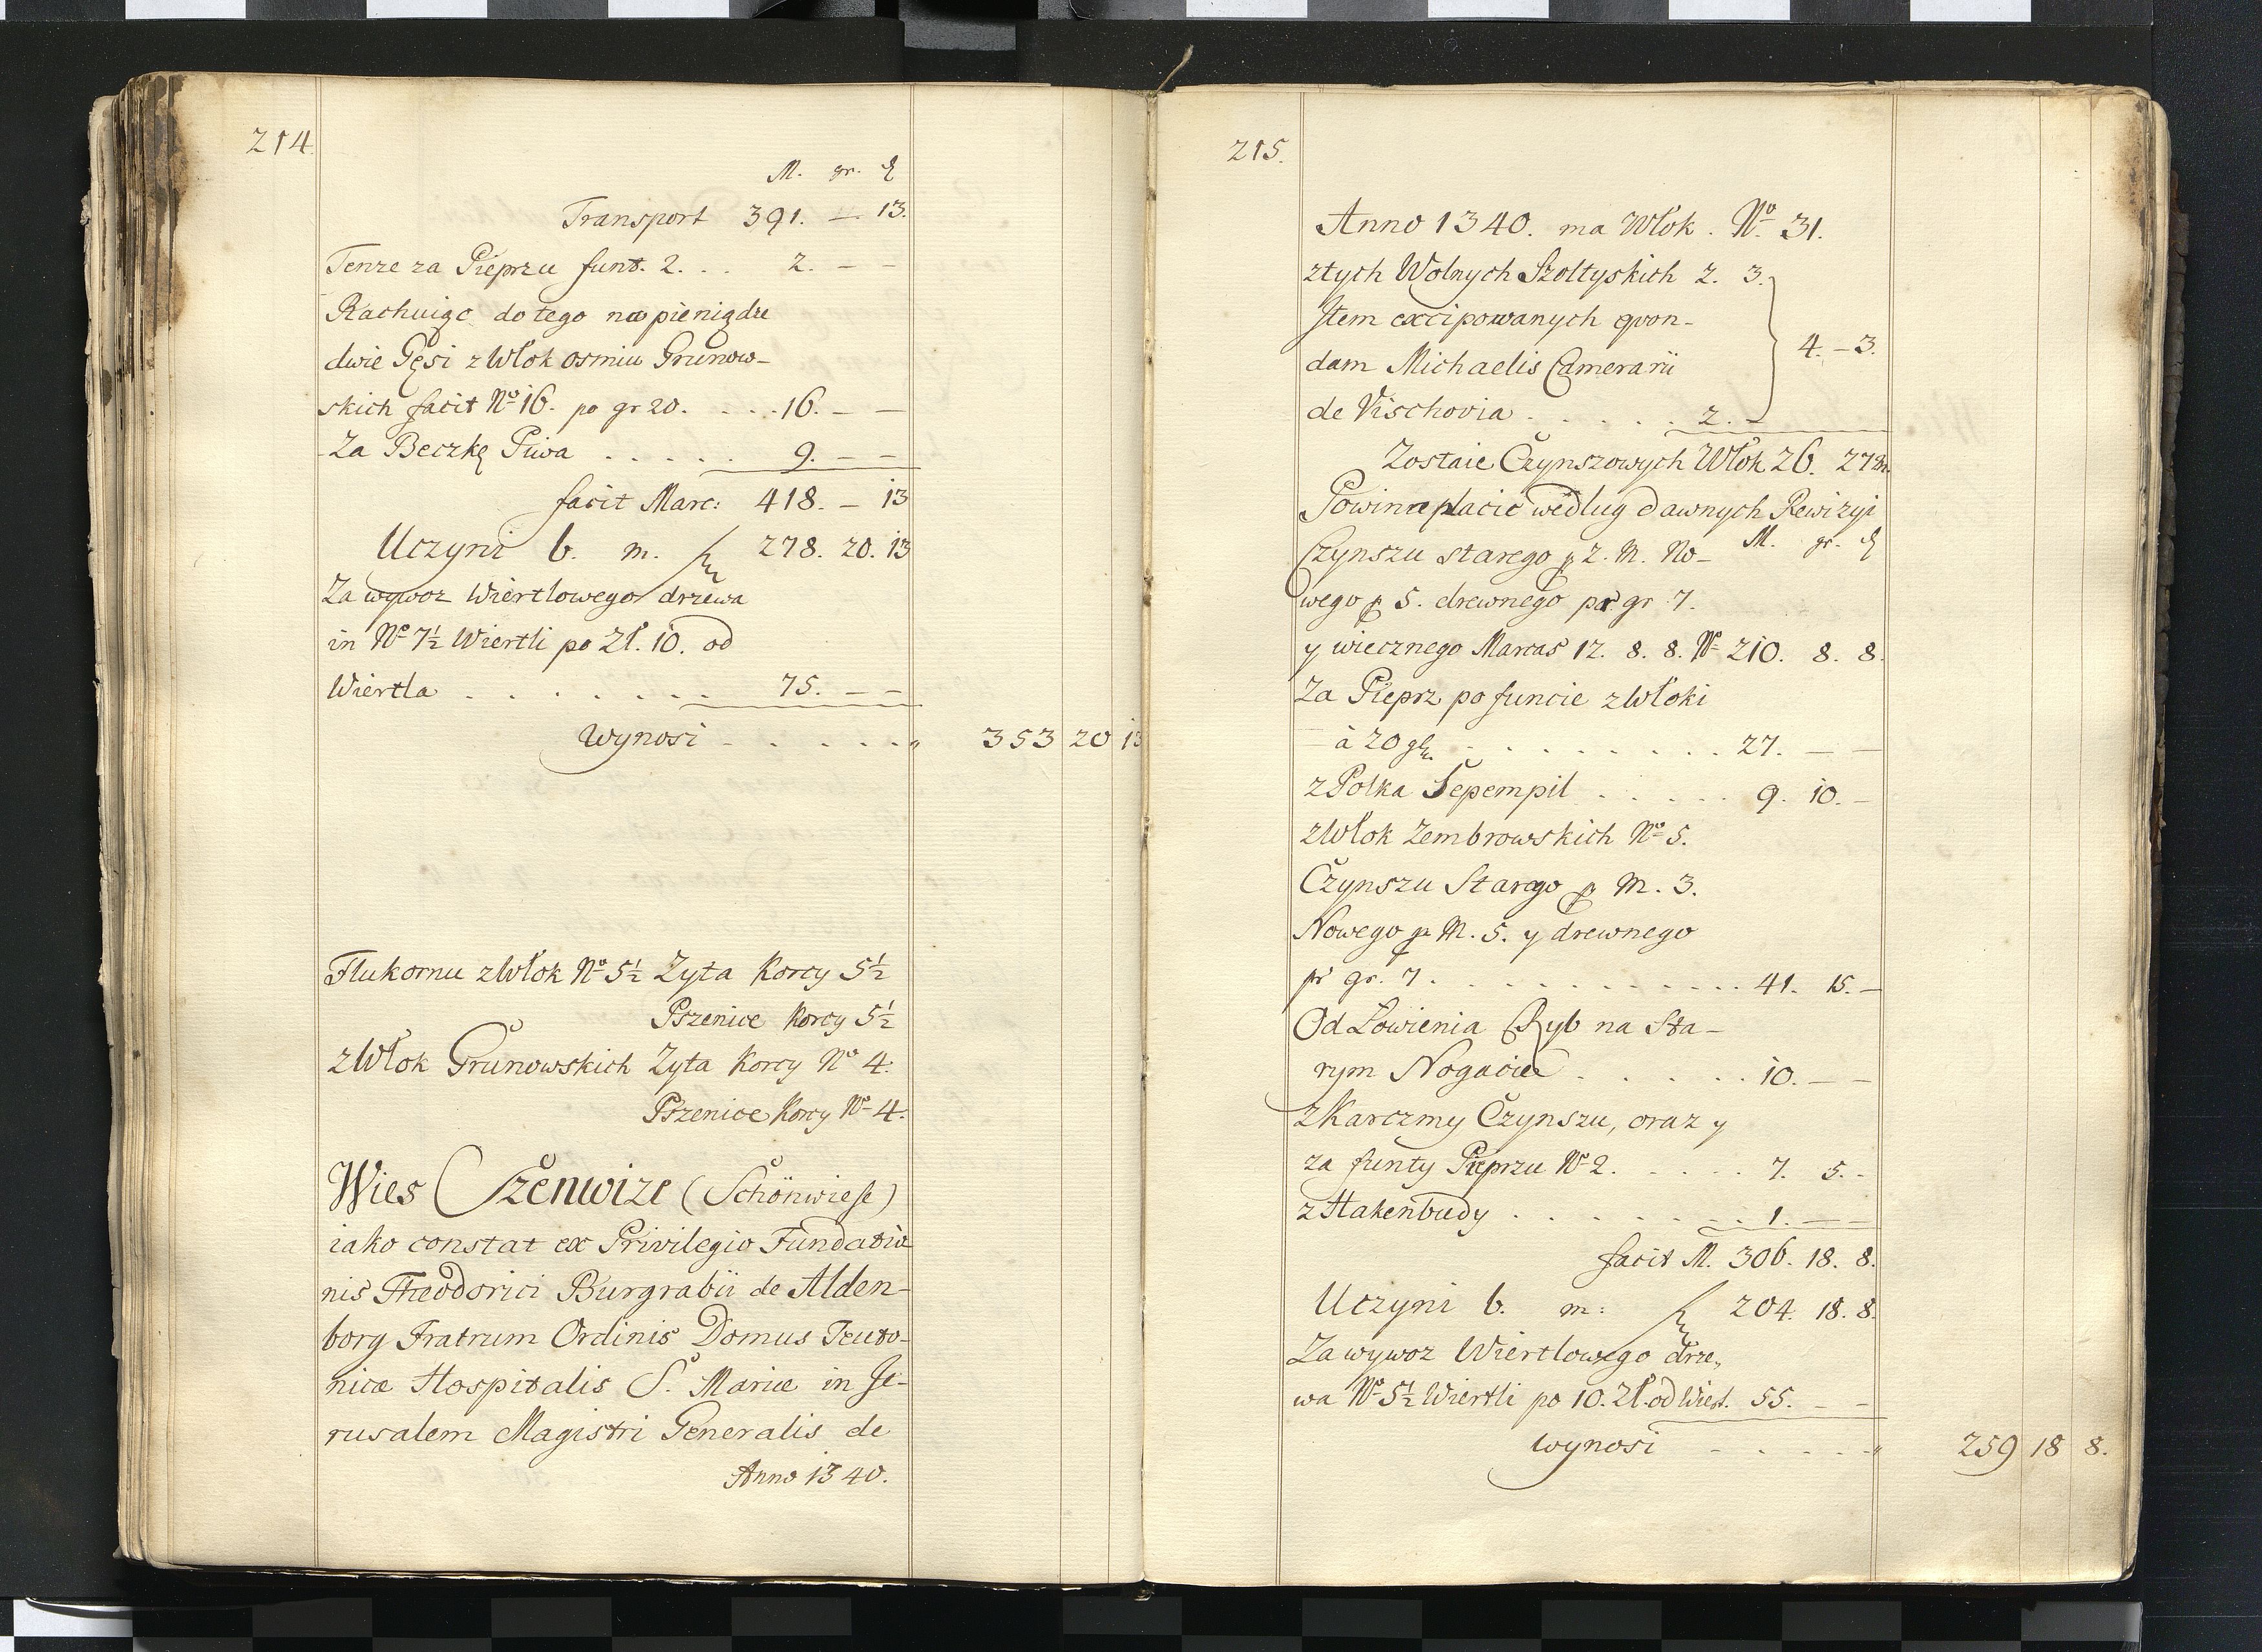 214.
M. gr. ₰
Transport 391. — 13.
Tenze za Pieprzu funt. 2. . . 2. — —
Rachuiąc do tego na pieniądze
dwie Gęsi z Włok osmiu Grunow-
skich facit No 16. po gr 20. . . . 16. — —
Za Beczkę Piwa . . . . . 9. — —
facit Marc: 418. — 13
Uczyni b. m. 278. 20. 13
Za wywoz Wiertlowego drzewa
in No 7½ Wiertli po Zł. 10. od
Wiertla . . . . . . . 75. — —
Wynosi - . . . . . " 353 20 13
Flukornu z Włok No 5½ Zyta Korcy 5½
Pszenice Korcy 5½
z Włok Grunowskich Zyta Korcy No 4.
Pszenice Korcy No 4.
Wies Szenwize (Schönwiese)
iako constat ex Privilegio Fundatio
nis Theodorici Burgrabii de Alden-
borg Fratrum Ordinis Domus Teuto-
nicæ Hospitalis S. Mariæ in Je-
rusalem Magistri Generalis de
Anno 1340.
215.
Anno 1340. ma Włok. No 31.
z tych Wolnych Szoltyskich 2. 3.
Item excipowanych qvon-
dam Michaelis Camerarii 4. — 3.
de Vischovia . . . . . 2. —
Zostaie Czynszowych Włok 26. 27 m.
Powinna placic według dawnych Rewizyi
Czynszu starego p 2. M. No- M. gr. ₰
wego p 5. drewnego par gr 7.
y wiecznego Marcas 12. 8. 8. No 210. 8. 8.
Za Pieprz po funcie z Włoki
à 20 gl. . . . . . . . . . 27. — —
z Polka Sepempil . . . . . 9. 10. —
z Włok Zembrowskich No 5.
Czynszu Starego p M. 3.
Nowego p M. 5. y drewnego
pr gr. 7. . . . . . . . . . . 41. 15. —
Od Łowienia Ryb na Sta-
rym Nogacie . . . . . 10. — —
z Karczmy Czynszu, oraz y
za funty Pieprzu No 2. . . . . 7. 5. -
z Hakenbudy . . . . . . . . 1. — —
facit M. 306. 18. 8.
Uczyni b. m: 204. 18. 8.
Za wywoz Wiertlowego drze„
wa No 5½ Wiertli po 10. Zł. od Wiert. 55. — —
wynosi - - . . . . " 259 18 8.